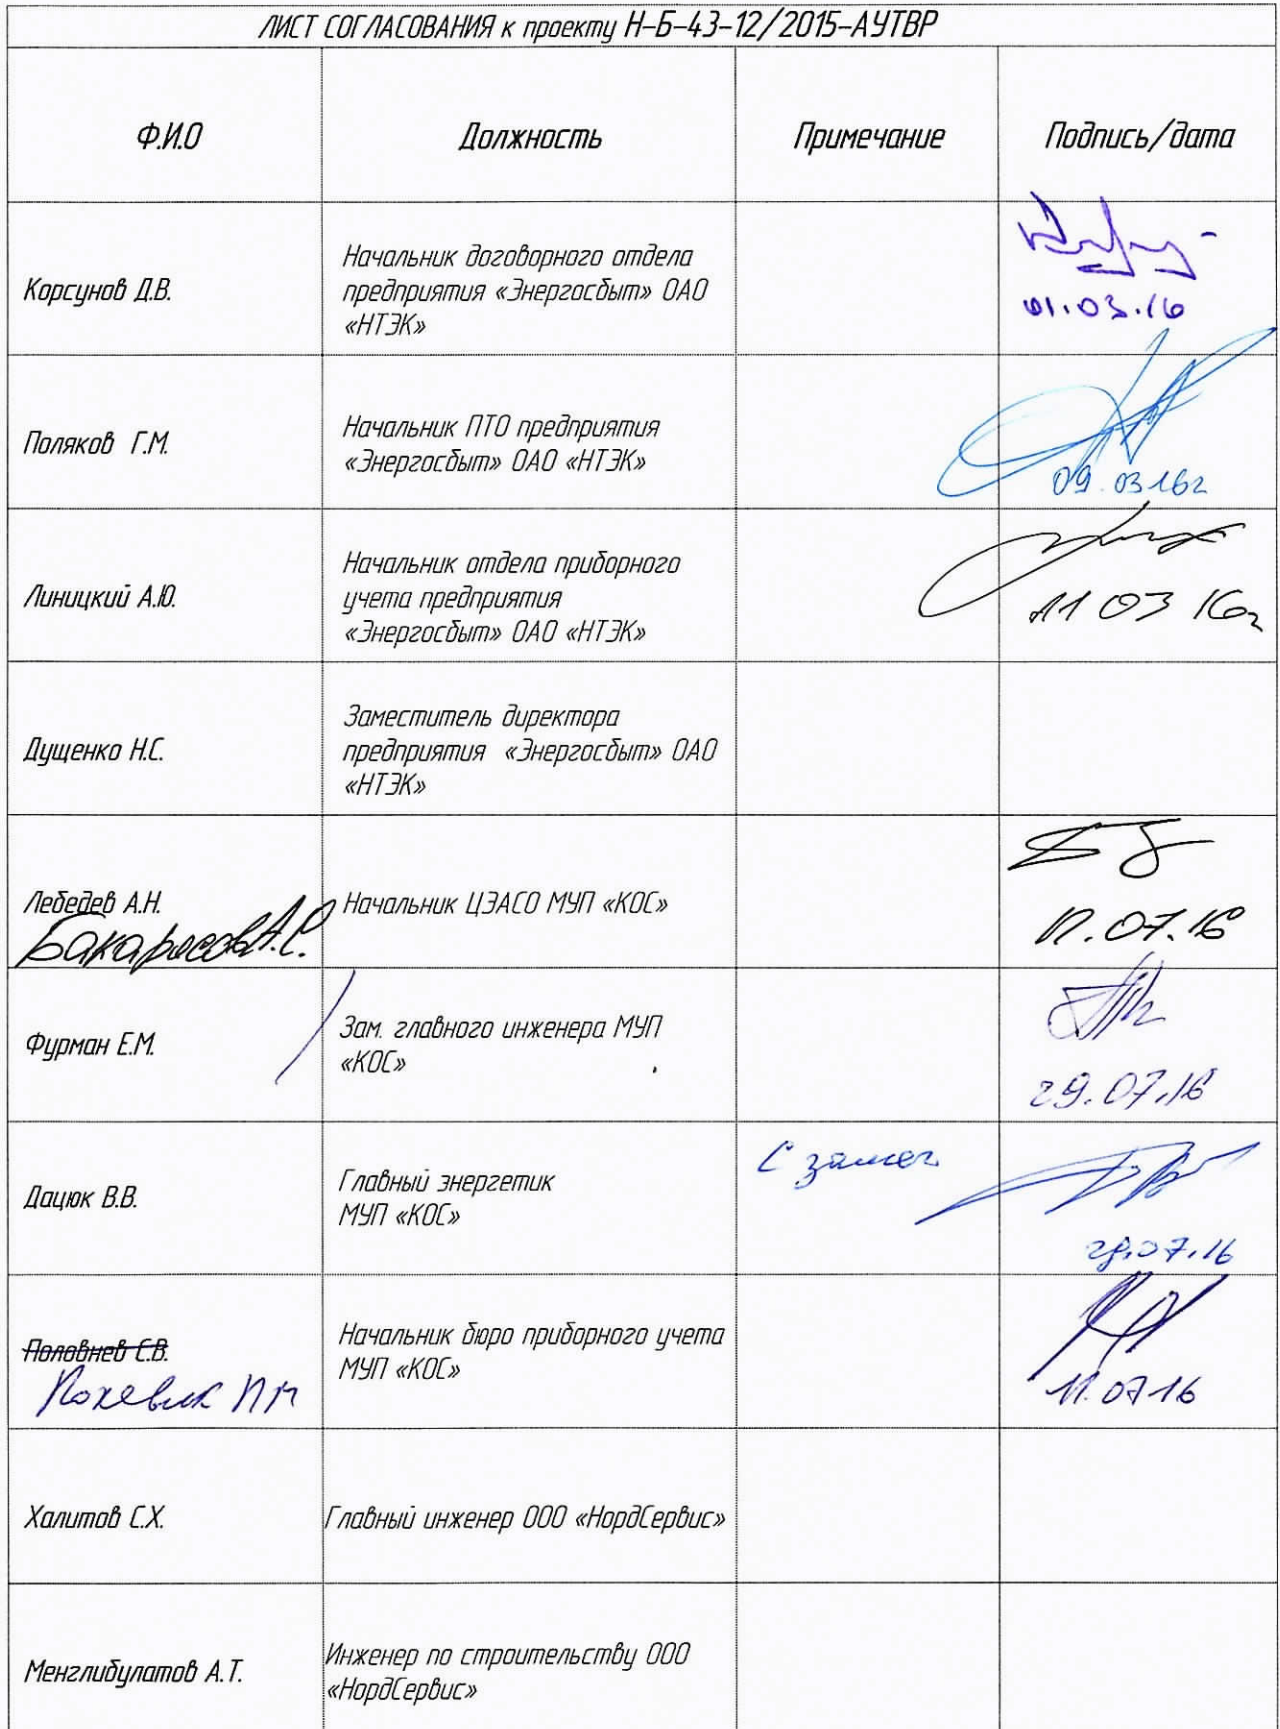 ЛИСТ СОГЛАСОВАНИЯ к проекту Н-Б-43-12/2015-АУТВР
Ф.И.О
Должность
Примечание
Подпись/дата
Корсунов Д.В.
Начальник договорного отдела
предприятия «Энергосбыт» ОАО
«НТЭК»
01.03.16
Поляков Г.М.
Начальник ПТО предприятия
«Энергосбыт» ОАО «НТЭК»
09.03.16г
Линицкий А.Ю.
Начальник отдела приборного
учета предприятия
«Энергосбыт» ОАО «НТЭК»
11 03 16г
Дущенко Н.С.
Заместитель директора
предприятия «Энергосбыт» ОАО
«НТЭК»
Лебедев А.Н.
А.С.
Начальник ЦЭАСО МУП «КОС»
07.16
Фурман Е.М.
Зам. главного инженера МУП
«КОС»
29.07.16
Дацюк В.В.
Главный энергетик
МУП «КОС»
С замеч
07.16
Половнев С.В.
Начальник бюро приборного учета
МУП «КОС»
11.07.16
Халитов С.Х.
Главный инженер ООО «НордСервис»
Менглибулатов А.Т.
Инженер по строительству ООО
«НордСервис»